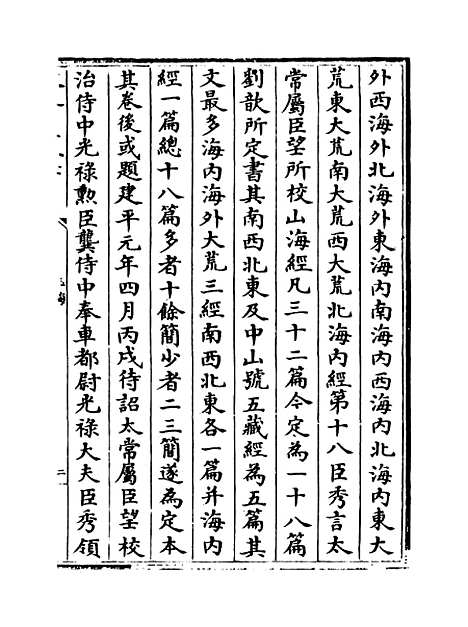 外西海外北海外東海内南海内西海内北海内東大
荒東大荒南大荒西大荒北海内經第十八臣秀言太
常屬臣望所校山海經凡三十二篇今定為一十八篇
劉歆所定書其南西北東及中山號五藏經為五篇其
文最多海内海外大荒三經南西北東各一篇并海内
經一篇總十八篇多者十餘簡少者二三簡遂為定本
其卷後或題建平元年四月丙戌待詔太常屬臣望校
治侍中光祿勲臣龔侍中奉車都尉光祿大夫臣秀領
玉海